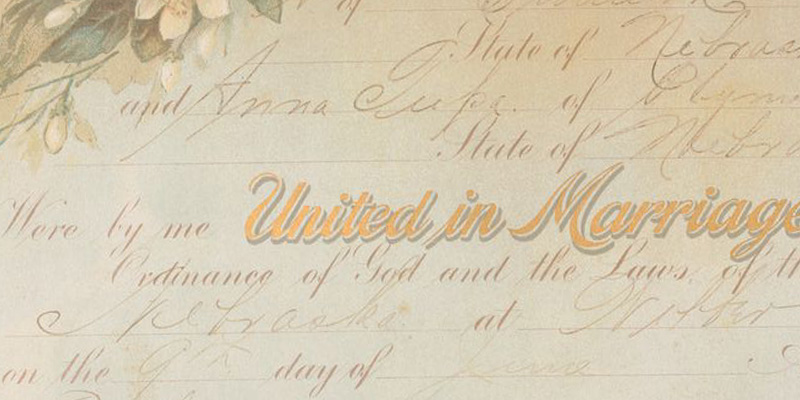 of
State of
and Anna Tupa. of
State of
Were by me United in Marriage
Ordinance of God and the Laws of
Nebraska at Wilber
on the 9th day of June